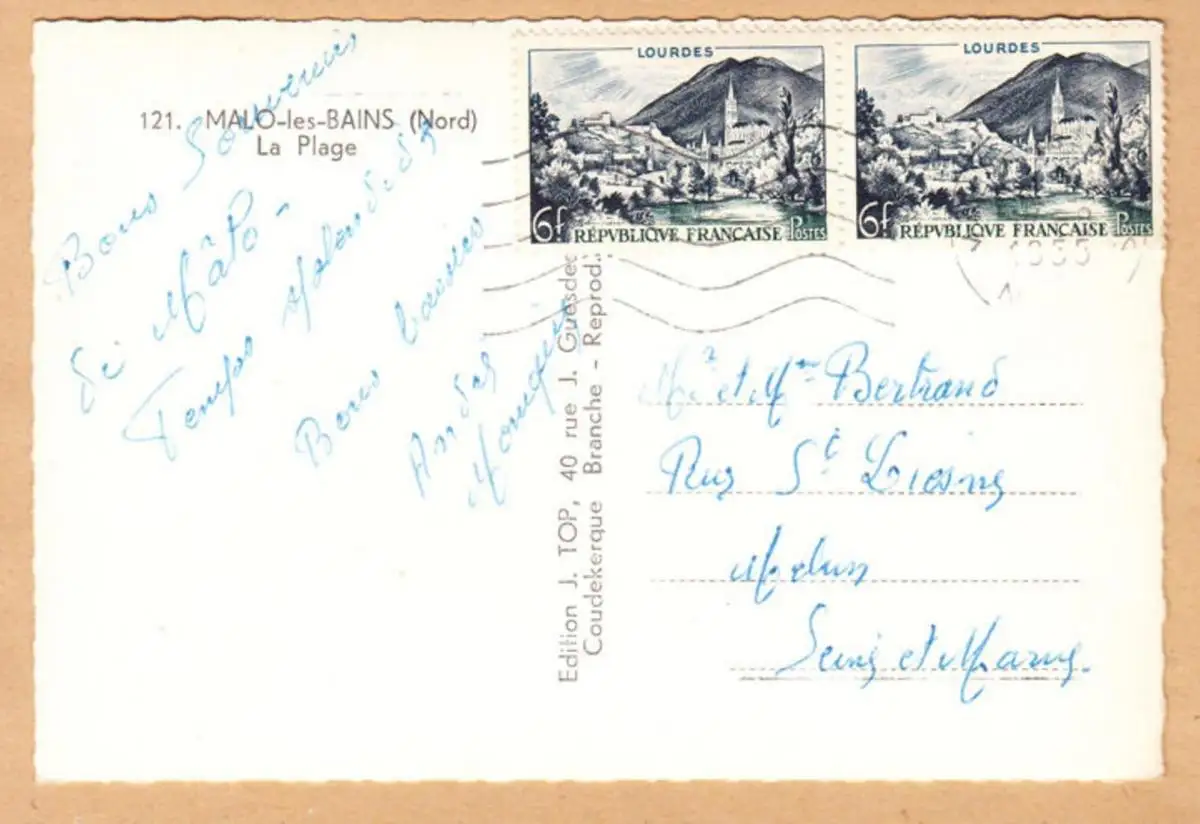 121. MALO-les-BAINS (Nord)
La Plage
Bons Souvenirs
de Malo
Temps splendide
Bons baisers
Andée
Monique
Edition J. TOP, 40 rue J. Guesde
Coudekerque Branche - Reprod.
LOURDES
6f RÉPVBLIQVE FRANÇAISE POSTES
LOURDES
6f RÉPVBLIQVE FRANÇAISE POSTES
1955
Mr et Mme Bertrand
Rue St Liesne
Melun
Seine et Marne.